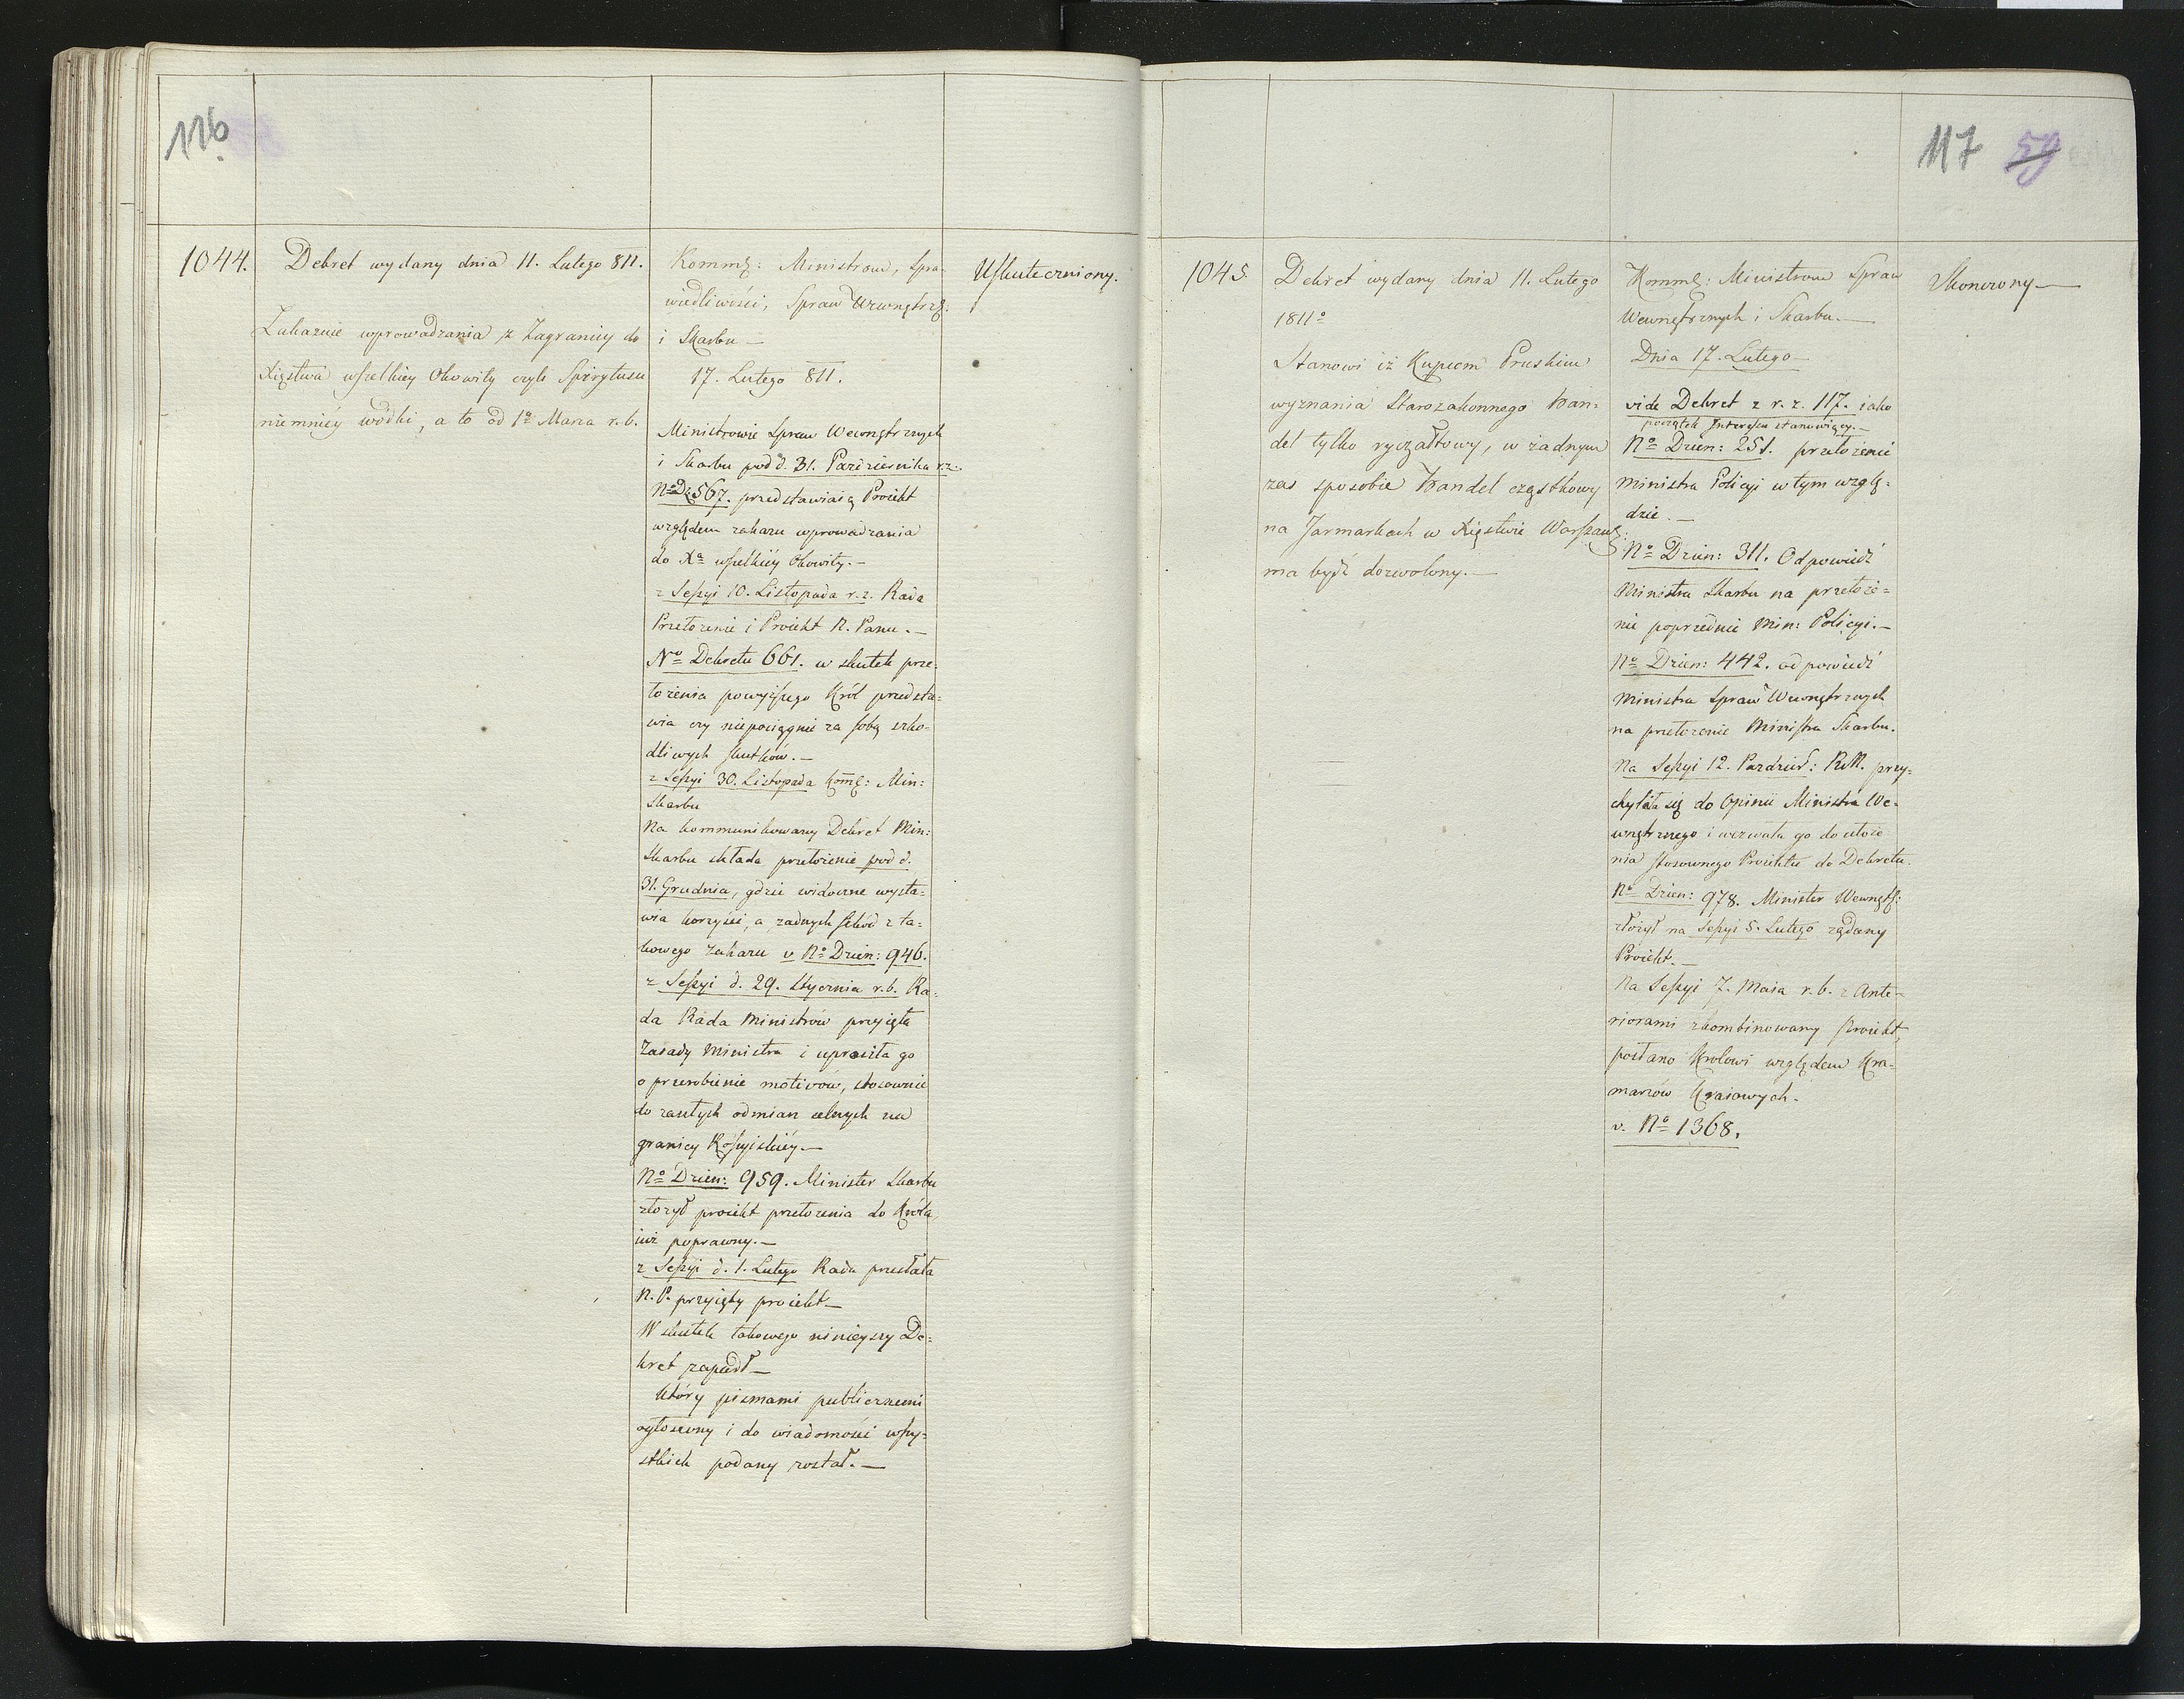 116
1044.
Dekret wydany dnia 11. Lutego 811.
Zakazuie wprowadzania z Zagranicy do
Xięstwa wszelkiey Okowity czyli Spirytusu
niemniéy wódki, a to od 1o Marca r. b.
Kommk: Ministrowi, Spra-
wiedliwości, Spraw Wewnętrzk:
i Skarbu —
17. Lutego 811.
Ministrowie Spraw Wewnętrznych
i Skarbu pod d. 31. Października r. z.
No Dz 567. przedstawiaią Proiekt
względem zakazu wprowadzania
do Xa wszelkiéy Okowity. —
z Sessyi 10. Listopada r. z. Rada
Przełożenie i Proiekt N. Panu. —
No Dekretu 661. w skutek prze-
łożenia powyższego Król przedsta-
wia czy niepociągnie za sobą szko-
dliwych skutków. —
z Sessyi 30. Listopada Komk: Min:
Skarbu
Na kommunikowany Dekret Min:
Skarbu składa przełożenie pod d.
31. Grudnia, gdzie widoczne wysta-
wia korzyści, a żadnych szkód z ta-
kowego zakazu v No Dzien: 946.
z Sessyi d. 29. Stycznia r. b. Ra-
da Rada Ministrów przyięła
Zasady Ministra i uprosiła go
o przerobienie motivów, stosownie
do zaszłych odmian celnych na
granicy Rossyiskiéy. —
No Dzien: 959. Minister Skarbu
złożył proiekt przełożenia do Króla
iuż poprawny. —
z Sessyi d. 1. Lutego Rada przesłała
N. P. przyięty proiekt —
W skutek takowego ninieyszy De-
kret zapadł —
który pismami publicznemi
ogłoszony i do wiadomości wszy-
stkich podany został. —
Uskuteczniony.
117 59
1045.
Dekret wydany dnia 11. Lutego
1811o
Stanowi iż Kupcom Pruskim
wyznania Starozakonnego han-
del tylko ryczałtowy, w żadnym
zas sposobie handel cząstkowy
na Jarmarkach w Xięstwie Warszawk:
ma bydź dozwolony. —
Kommk: Ministrom Spraw
Wewnętrznych i Skarbu. —
Dnia 17. Lutego —
vide Dekret z r. z. 117. iako
początek Interessu stanowiący. —
No Dzien: 251. przełożenie
Ministra Policyi w tym wzglę-
dzie. —
No Dzien: 311. Odpowiedź
Ministra Skarbu na przełoże-
nie poprzednie Min: Policyi. —
No Dzien: 442. odpowiedź
Ministra Spraw Wewnętrznych
na przełożenie Ministra Skarbu.
Na Sessyi 12. Paździer: R. M. przy-
chyliła się do Opinii Ministra We-
wnętrznego i wezwała go do ułoże-
nia stosownego Proiektu do Dekretu.
No Dzien: 978. Minister Wewnętrz:
złożył na Sessyi 5. Lutego rządany
Proiekt. —
Na Sessyi 7. Maia r. b. z Ante-
riorami zkombinowany proiekt,
posłano Krolowi względem Kra-
marzów Kraiowych.
v. No 1368.
Skonczony —